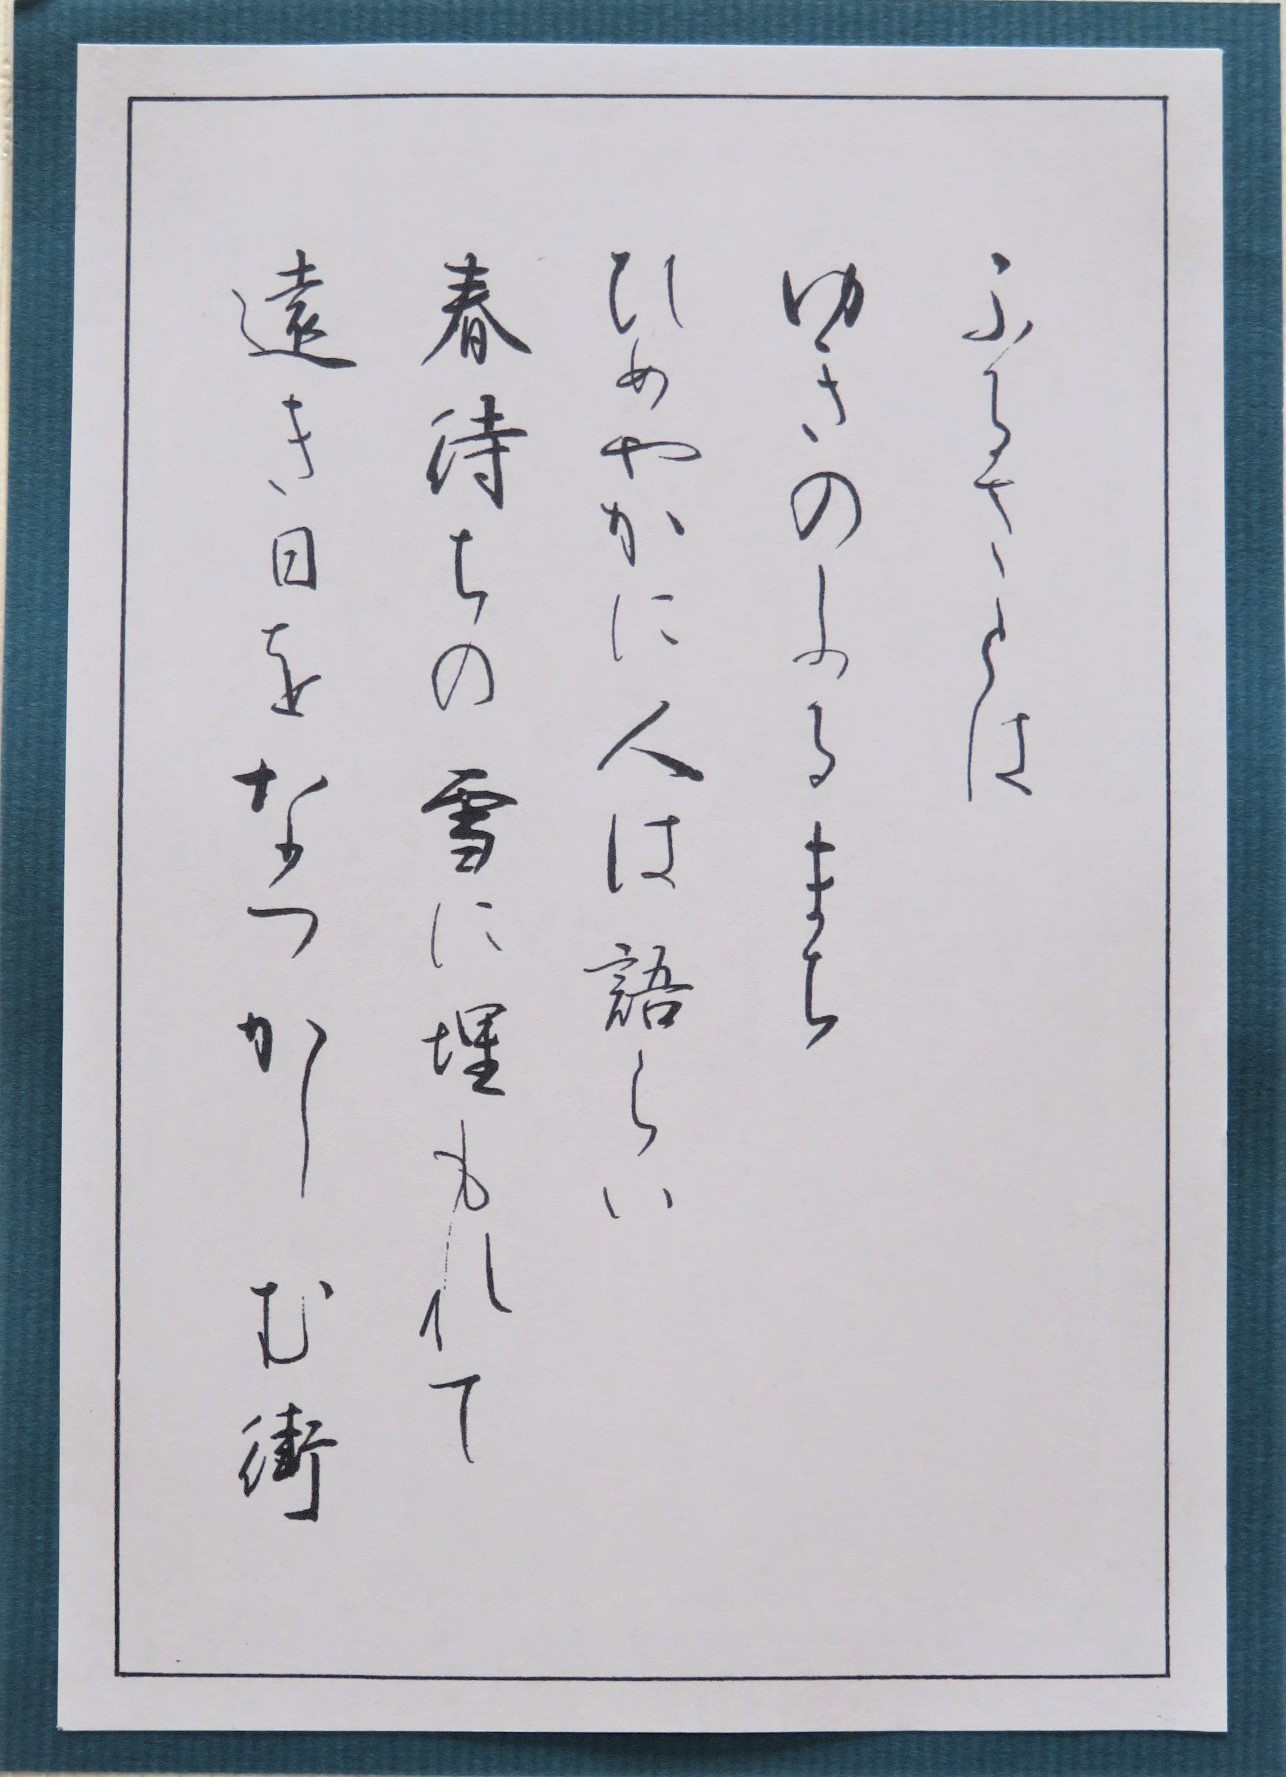 ふるさとは
ゆきのふるまち
ひめやかに人は語らい
春待ちの雪に埋もれて
遠き日をなつかしむ街